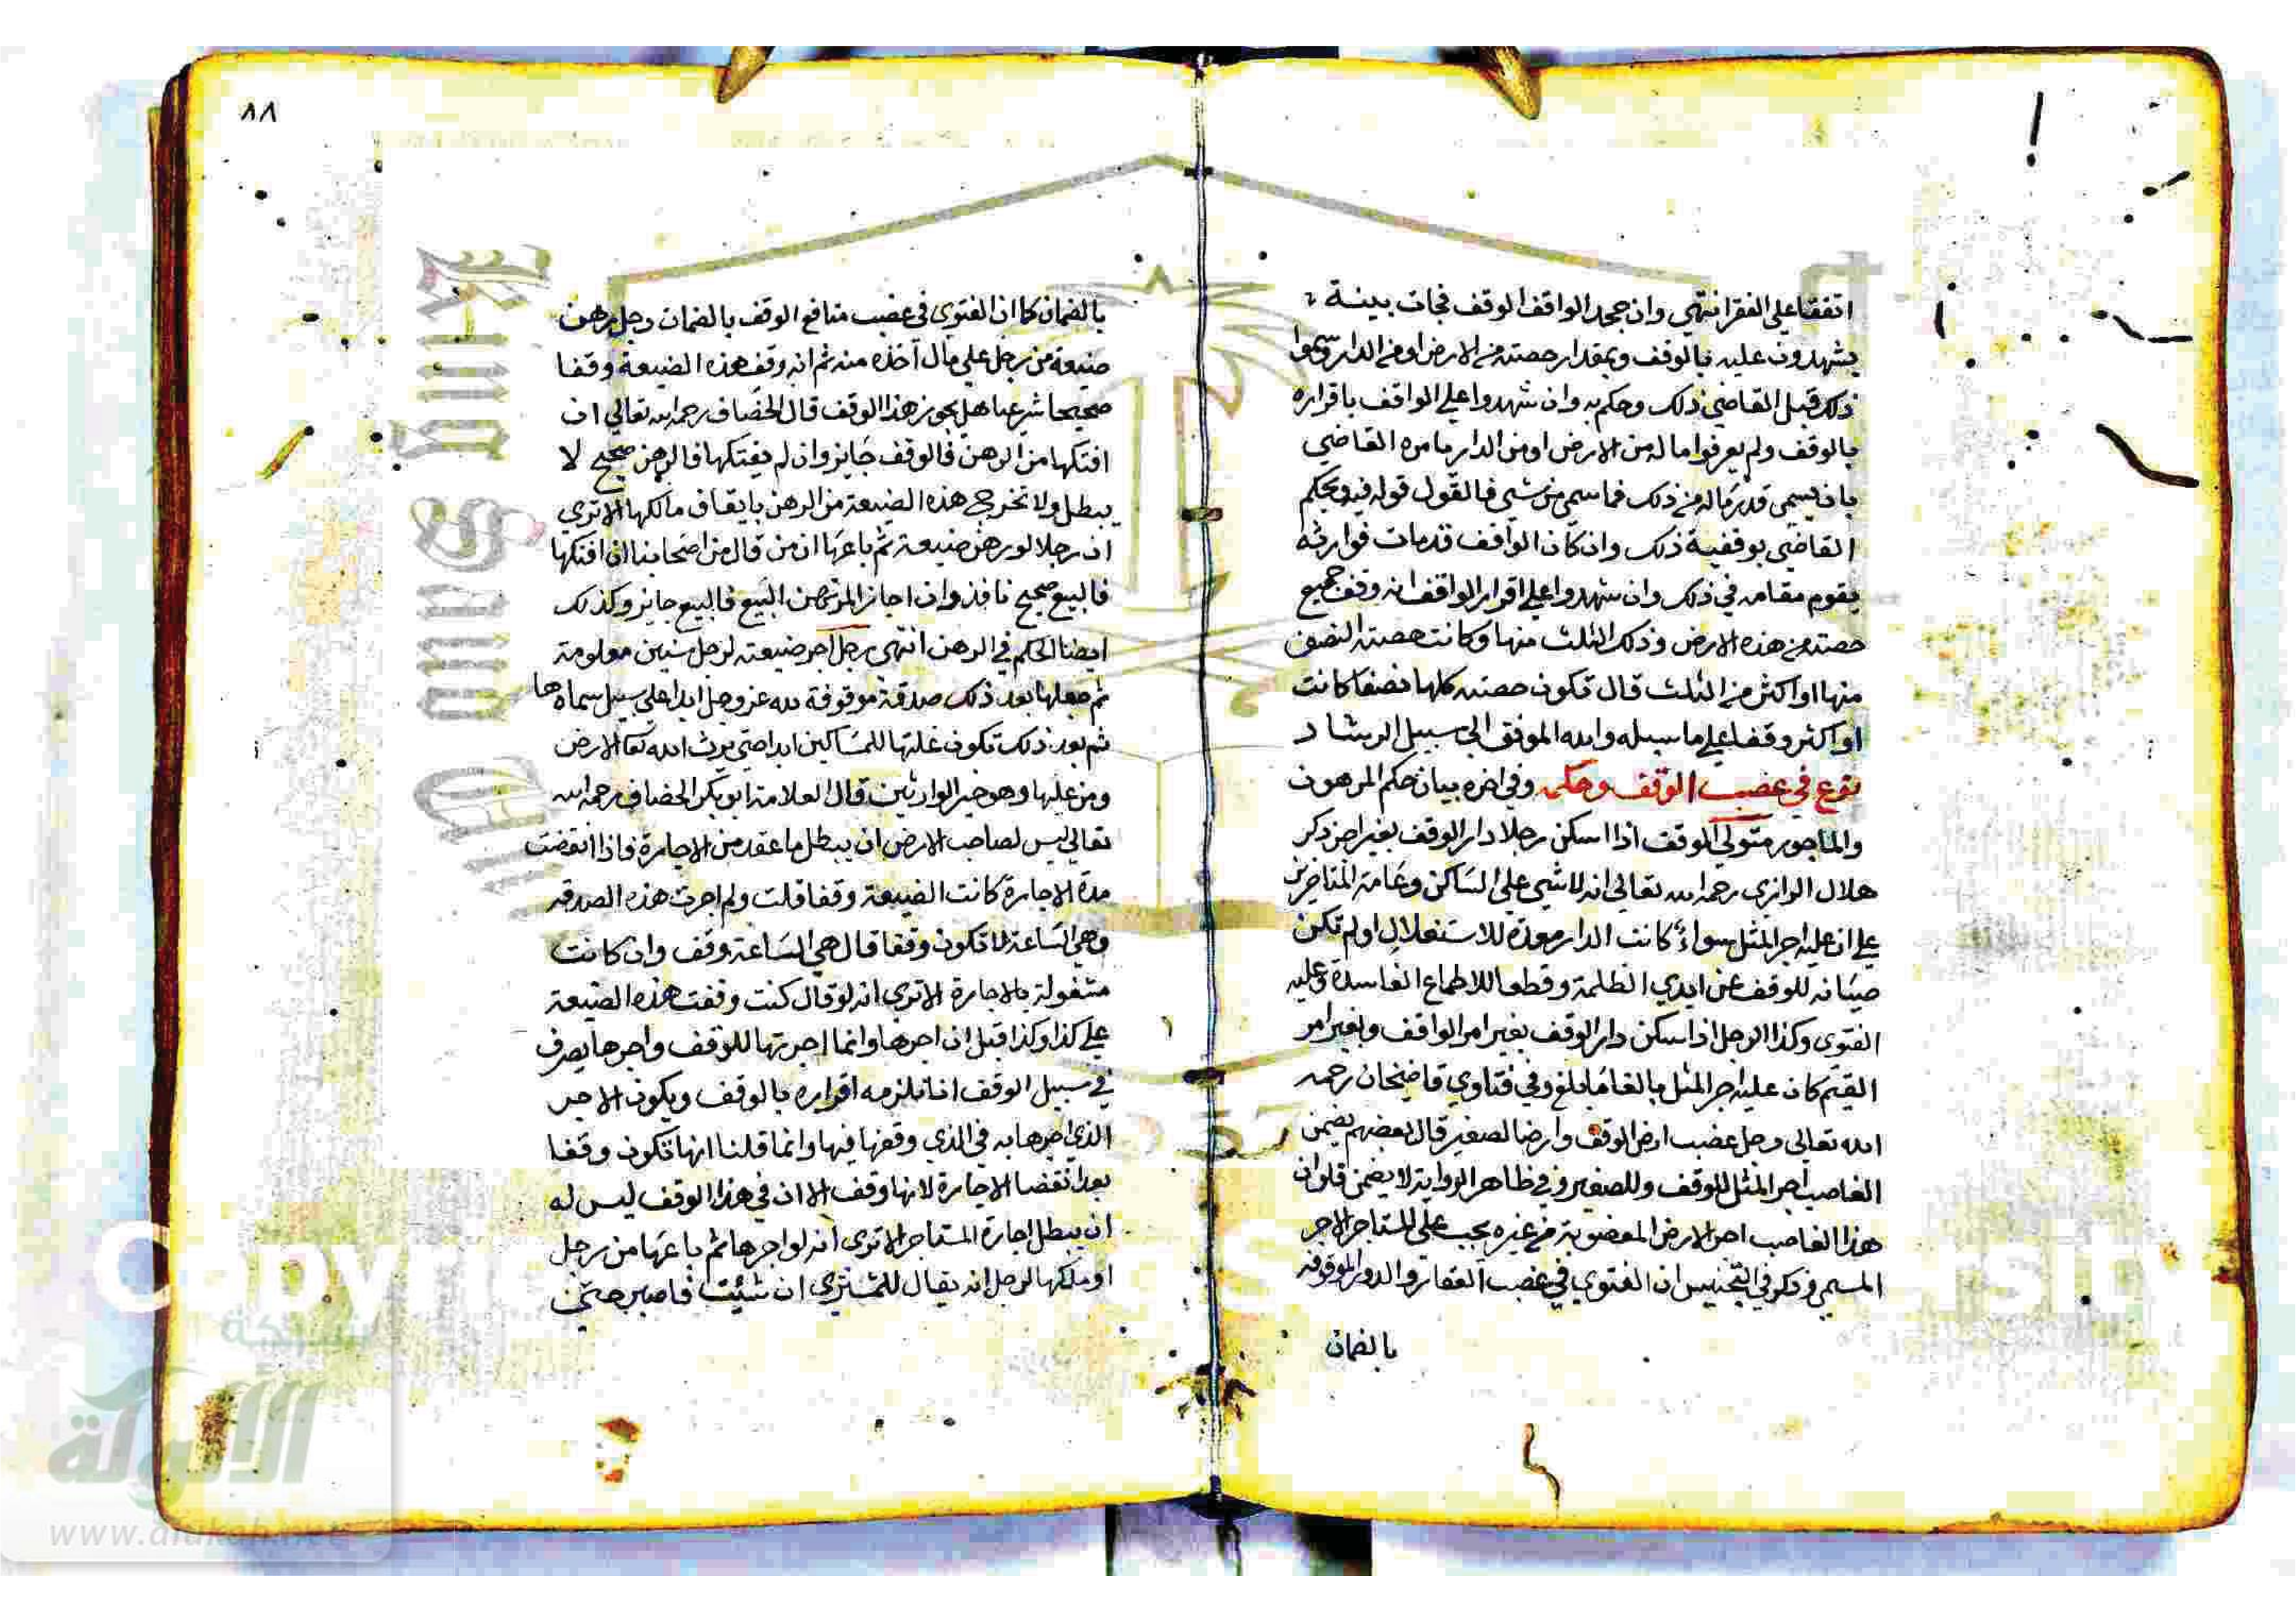 اتفقنا على الفقرا انتهى وان جحد الواقف الوقف فجات بينة
يشهدون عليه بالوقف وبمقدار حصته من الارض او من الدار وسموا
ذلك قبل القاضى ذلك وحكم به وان شهدوا على الواقف باقراره
بالوقف ولم يعرفوا ماله من الارض او من الدار يامره القاضي
بان يسمى قدر ماله من ذلك فما سمى من شي فالقول قوله فيه ويحكم
القاضي بوقفية ذلك وان كان الواقف قد مات فوارثه
يقوم مقامه في ذلك وان شهدوا على اقرار الواقف انه وقف جميع
حصته من هذه الارض وذلك الثلث منها وكانت حصته النصف
منها او اكثر من الثلث قال تكون حصته كلها نصفا كانت
او اكثر وقفا على ما سبله والله الموفق الى سبيل الرشاد
نوع في غصب الوقف وحكمه وفي اخره بيان حكم المرهون
والماجور متولى الوقف اذا اسكن رجلا دار الوقف بغير اجر ذكر
هلال الرازى رحمه الله تعالى انه لا شي على الساكن وعامة المتاخرين
على ان عليه اجر المثل سواء كانت الدار معدة للاستغلال او لم تكن
صيانه للوقف عن ايدي الظلمة وقطعا للاطماع الفاسدة وعليه
الفتوى وكذا الرجل اذا سكن دار الوقف بغير امر الواقف وبغير امر
القيم كان عليه اجر المثل بالغا ما بلغ وفي فتاوي قاضيخان رحمه
الله تعالى رجل غصب ارض الوقف وارضا لصغير قال بعضهم يضمن
الغاصب اجر المثل للوقف وللصغير وفي ظاهر الرواية لا يضمن فلو ان
هذا الغاصب اجر الارض المغصوبة من غيره يجب على المستاجر الاجر
المسمى وذكر في التجنيس ان الفتوي في غصب العقار والدور الموقوفه
بالضمان
٨٨
بالضمان كما ان الفتوى في غصب منافع الوقف بالضمان رجل رهن
ضيعة من رجل على مال اخذه منه ثم انه وقف هذه الضيعة وقفا
صحيحا شرعيا هل يجوز هذا الوقف قال الخصاف رحمه الله تعالى ان
افتكها من الرهن فالوقف جايز وان لم يفتكها فالرهن صحيح لا
يبطل ولا تخرج هذه الضيعة من الرهن بايقاف مالكها الا ترى
ان رجلا لو رهن ضيعة ثم باعها ان من قال من اصحابنا ان افتكها
فالبيع صحيح نافذ وان اجاز المرتهن البيع فالبيع جايز وكذلك
ايضا الحكم في الرهن انتهى رجل اجر ضيعته لرجل سنين معلومة
ثم جعلها بعد ذلك صدقة موقوفة لله عز وجل ابدا على سبيل سماها
ثم بعد ذلك تكون غلتها للمساكين ابدا حتى يرث الله تعا الارض
ومن عليها وهو خير الوارثين قال العلامة ابو بكر الخصاف رحمه الله
تعالى ليس لصاحب الارض ان يبطل ما عقد من الاجارة فاذا انقضت
مدة الاجارة كانت الضيعة وقفا قلت ولم اجرت هذه الصدقه
وهي الساعة لا تكون وقفا قال هي الساعة وقف وان كانت
مشغولة بالاجارة الا ترى انه لو قال كنت وقفت هذه الضيعة
على كذا وكذا قبل ان اجرها وانما اجرتها للوقف واجرها يصرف
في سبيل الوقف انا نلزمه اقراره بالوقف ويكون الاجر
الذي اجرها به في الذي وقفها فيها وانما قلنا انها تكون وقفا
بعد انقضا الاجارة لانها وقف الا ان في هذا الوقف ليس له
ان يبطل اجارة المستاجر الا ترى انه لو اجرها ثم باعها من رجل
او ملكها لرجل انه يقال للمشتري ان شئت فاصبر حتى
شبكة
الألوكة
www.alukah.net